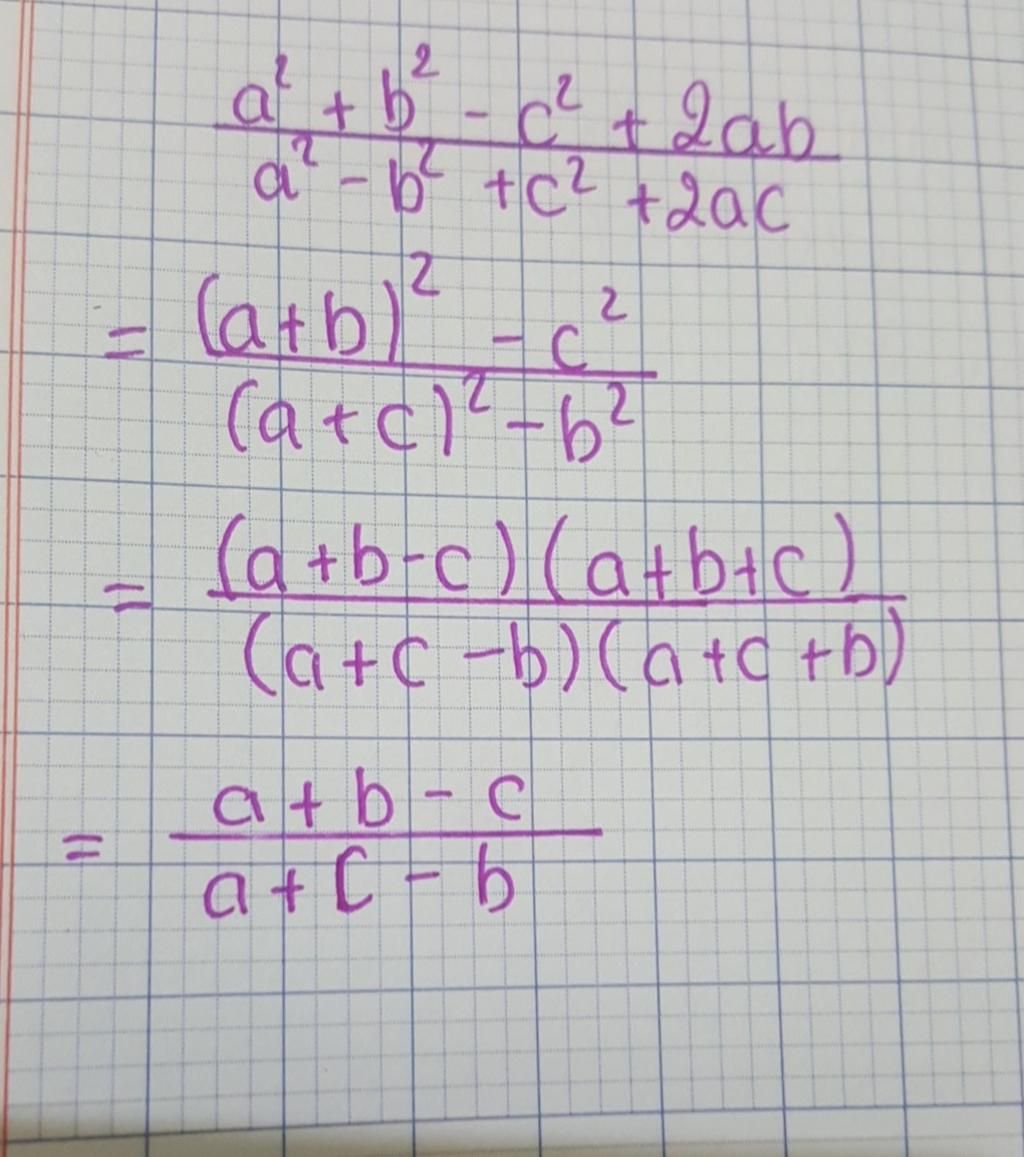 a² + b² - c² + 2ab
a² - b² + c² + 2ac
= (a+b)² - c²
(a+c)² - b²
= (a+b-c)(a+b+c)
(a+c-b)(a+c+b)
= a + b - c
a + c - b